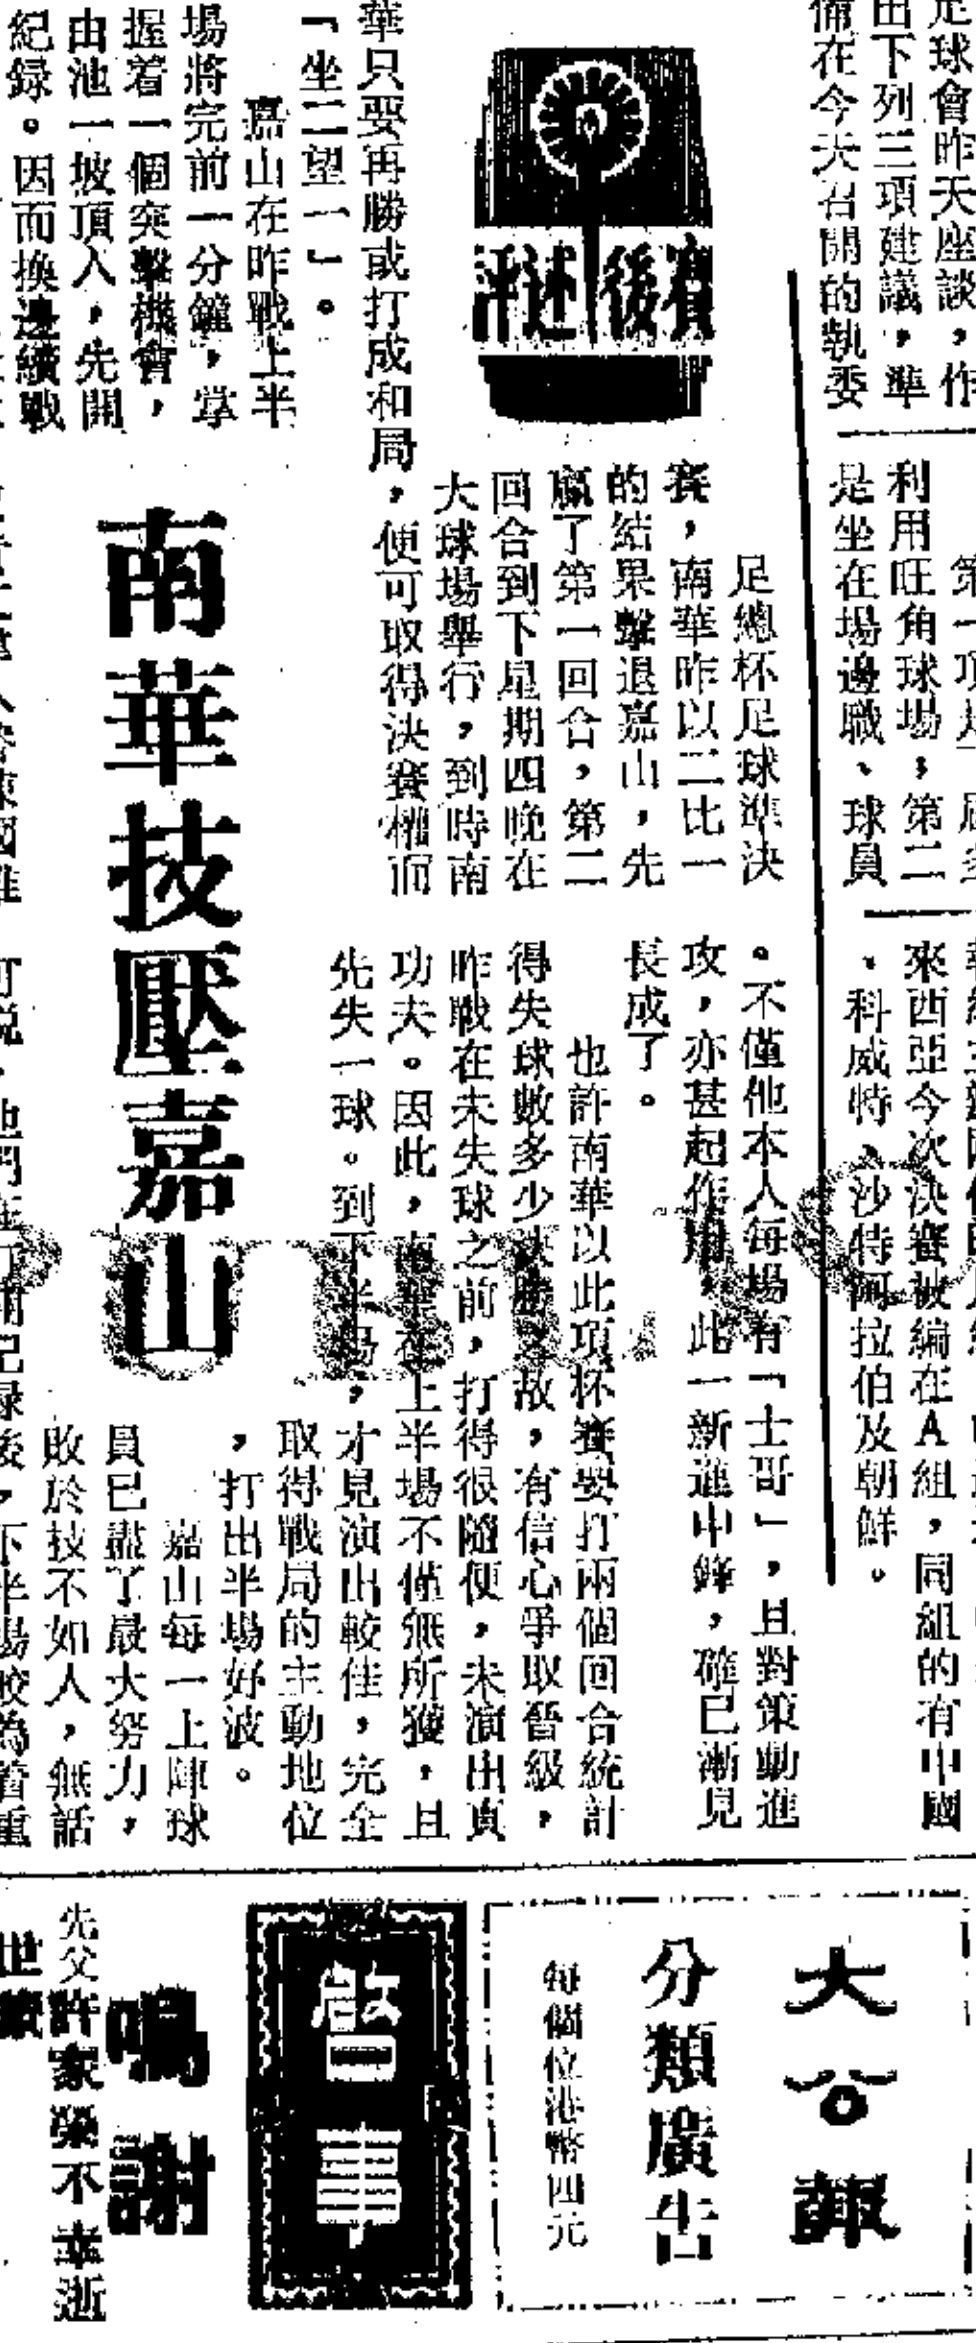 足球會昨天座談，作
出下列三項建議，準
備在今天召開的執委
利用旺角球場，第二
是坐在場邊職、球員
來西亞今次決賽被編在A組，同組的有中國
、科威特、沙特阿拉伯及朝鮮。
賽後述評
南華技壓嘉山
足總杯足球準決
賽，南華昨以二比一
的結果擊退嘉山，先
贏了第一回合，第二
回合到下星期四晚在
大球場舉行，到時南
華只要再勝或打成和局，便可取得決賽權而
「坐二望一」。
嘉山在昨戰上半
場將完前一分鐘，掌
握着一個突擊機會，
由池一坡頂入，先開
紀録。因而換邊續戰
。不僅他本人每場有「士哥」，且對策動進
攻，亦甚起作用，此一新進中鋒，確已漸見
長成了。
也許南華以此項杯賽要打兩個回合統計
得失球數多少決勝之故，有信心爭取晉級，
昨戰在未失球之前，打得很隨便，未演出真
功夫。因此，南華在上半場不僅無所獲，且
先失一球。到下半場，才見演出較佳，完全
取得戰局的主動地位
，打出半場好波。
嘉山每一上陣球
員已盡了最大努力，
敗於技不如人，無話
可説
後，下半場較為着重
大公報
分類廣告
每個位港幣四元
啟事
鳴謝
先父許家榮不幸逝